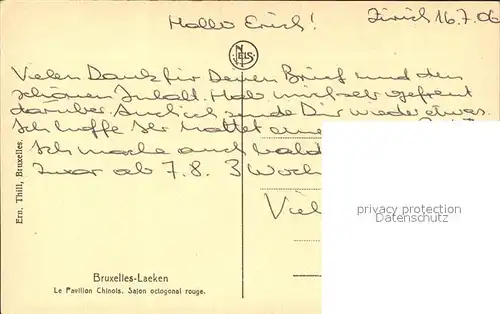 Hallo Erich! Zürich 16.7.06
NELS
Vielen Dank für Deinen Brief und den
schönen Inhalt. Hab mich sehr gefreut
darüber. Auch ich sende Dir wieder etwas.
Ich hoffe Ihr hattet eine
Ich mache auch bald
zwar ab 7.8. 3 Woch
Viel
privacy protection
ansichtskarten-center.de
Ern. Thill, Bruxelles.
Bruxelles-Laeken
Le Pavillon Chinois. Salon octogonal rouge.